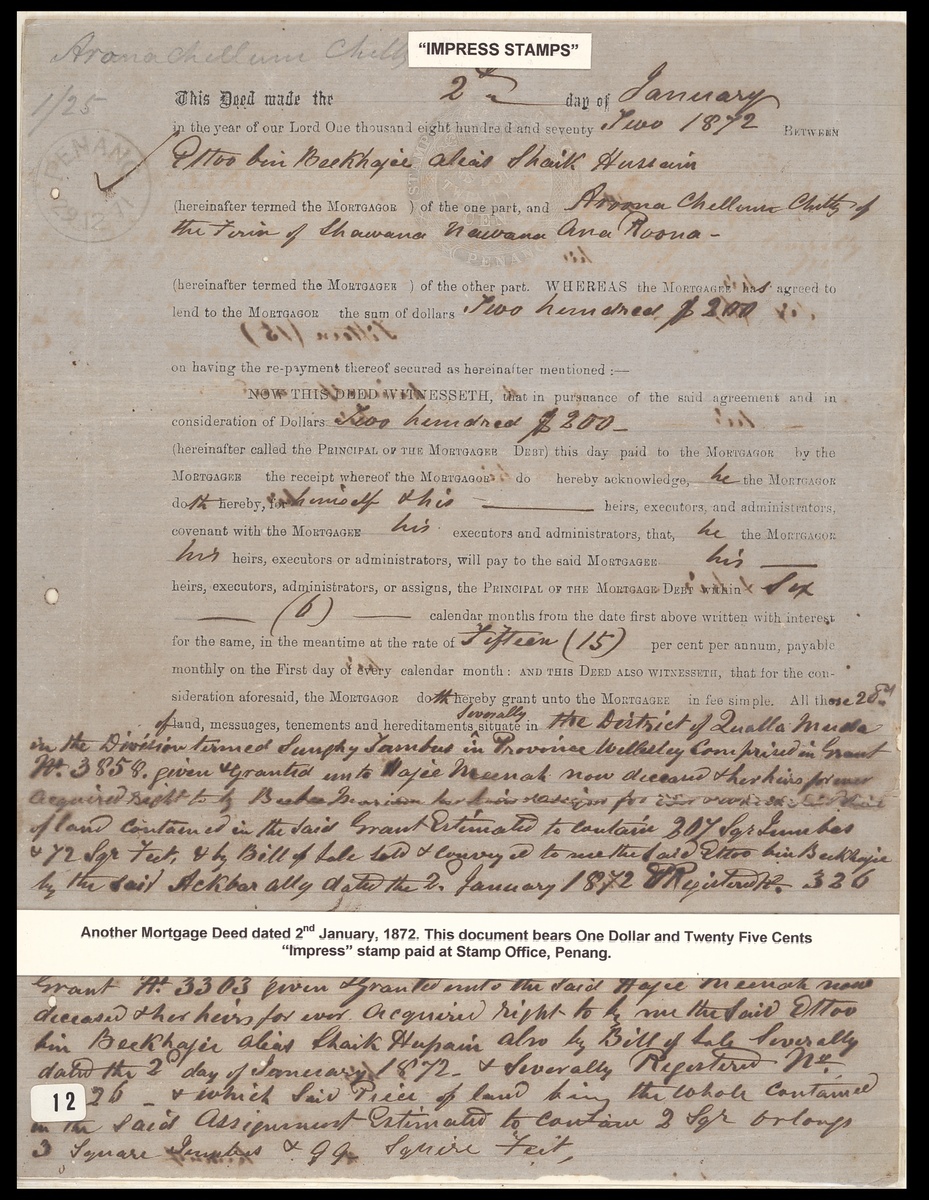 Aronachellum Chitty
"IMPRESS STAMPS"
1/25
This Deed made the 2nd day of January
in the year of our Lord One thousand eight hundred and seventy Two 1872 BETWEEN
PENANG
29 12 71
Ettoo bin Beekhajee alias Shaik Hussain
(hereinafter termed the MORTGAGOR ) of the one part, and Aroona Chellum Chitty of
the Firm of Shawana Nawana Ana Roona -
(hereinafter termed the MORTGAGEE ) of the other part. WHEREAS the MORTGAGEE has agreed to
lend to the MORTGAGOR the sum of dollars Two hundred $ 200
on having the re-payment thereof secured as hereinafter mentioned :—
NOW THIS DEED WITNESSETH, that in pursuance of the said agreement and in
consideration of Dollars Two hundred $ 200 -
(hereinafter called the PRINCIPAL OF THE MORTGAGE DEBT) this day paid to the MORTGAGOR by the
MORTGAGEE the receipt whereof the MORTGAGOR do hereby acknowledge, he the MORTGAGOR
doth hereby, for himself & his heirs, executors, and administrators,
covenant with the MORTGAGEE his executors and administrators, that, he the MORTGAGOR
his heirs, executors or administrators, will pay to the said MORTGAGEE his
heirs, executors, administrators, or assigns, the PRINCIPAL OF THE MORTGAGE DEBT within Six
(6) calendar months from the date first above written with interest
for the same, in the meantime at the rate of Fifteen (15) per cent per annum, payable
monthly on the First day of every calendar month : AND THIS DEED ALSO WITNESSETH, that for the con-
sideration aforesaid, the MORTGAGOR doth hereby grant unto the MORTGAGEE in fee simple. All those
of land, messuages, tenements and hereditaments severally situate in the District of Qualla Muda
in the Division termed Sunghy Jambus in Province Wellesley Comprised in Grant
No. 3858. given & Granted unto Hajee Meenah now deceased & her heirs for ever
acquired right to by
of land contained in the said Grant Estimated to contain 207 Sqr Jumbas
& 72 Sqr Feet, & by Bill of Sale sold & conveyed to me the said Ettoo bin Beekhajee
by the said Ackbar ally dated the 2. January 1872 & Registered No. 326
Another Mortgage Deed dated 2nd January, 1872. This document bears One Dollar and Twenty Five Cents
"Impress" stamp paid at Stamp Office, Penang.
Grant No. 3303 given & Granted unto the said Hajee Meenah now
deceased & her heirs for ever acquired right to by me the said Ettoo
bin Beekhajee alias Shaik Hussain also by Bill of Sale Severally
dated the 2d day of January 1872 - & Severally Registered No.
26 - & which said Piece of land being the whole contained
in the said Assignment Estimated to contain 2 Sqr orlongs
3 Square Jumbas & 99 Square Feet,
12